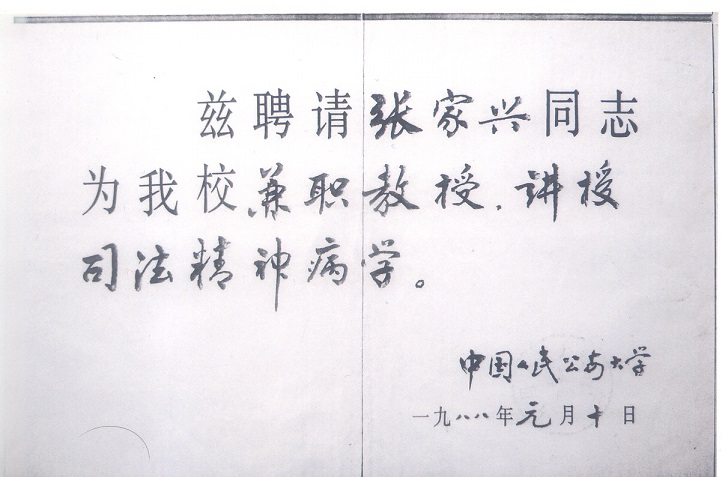 兹聘请张家兴同志
为我校兼职教授，讲授
司法精神病学。
中国人民公安大学
一九八八年元月十日